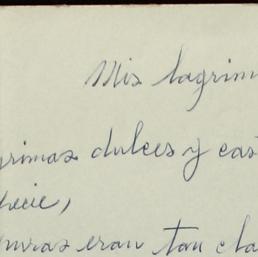 Mis lagrim
rimas dulces y cas
ecie,
uras eran tan cla